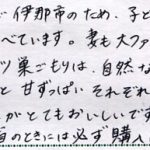 伊那市のため、子ど
べています。妻も大ファ
ツ巣ごもりは、自然な
と甘ずっぱい それぞれ
がとてもおいしいです
のときには必ず購入